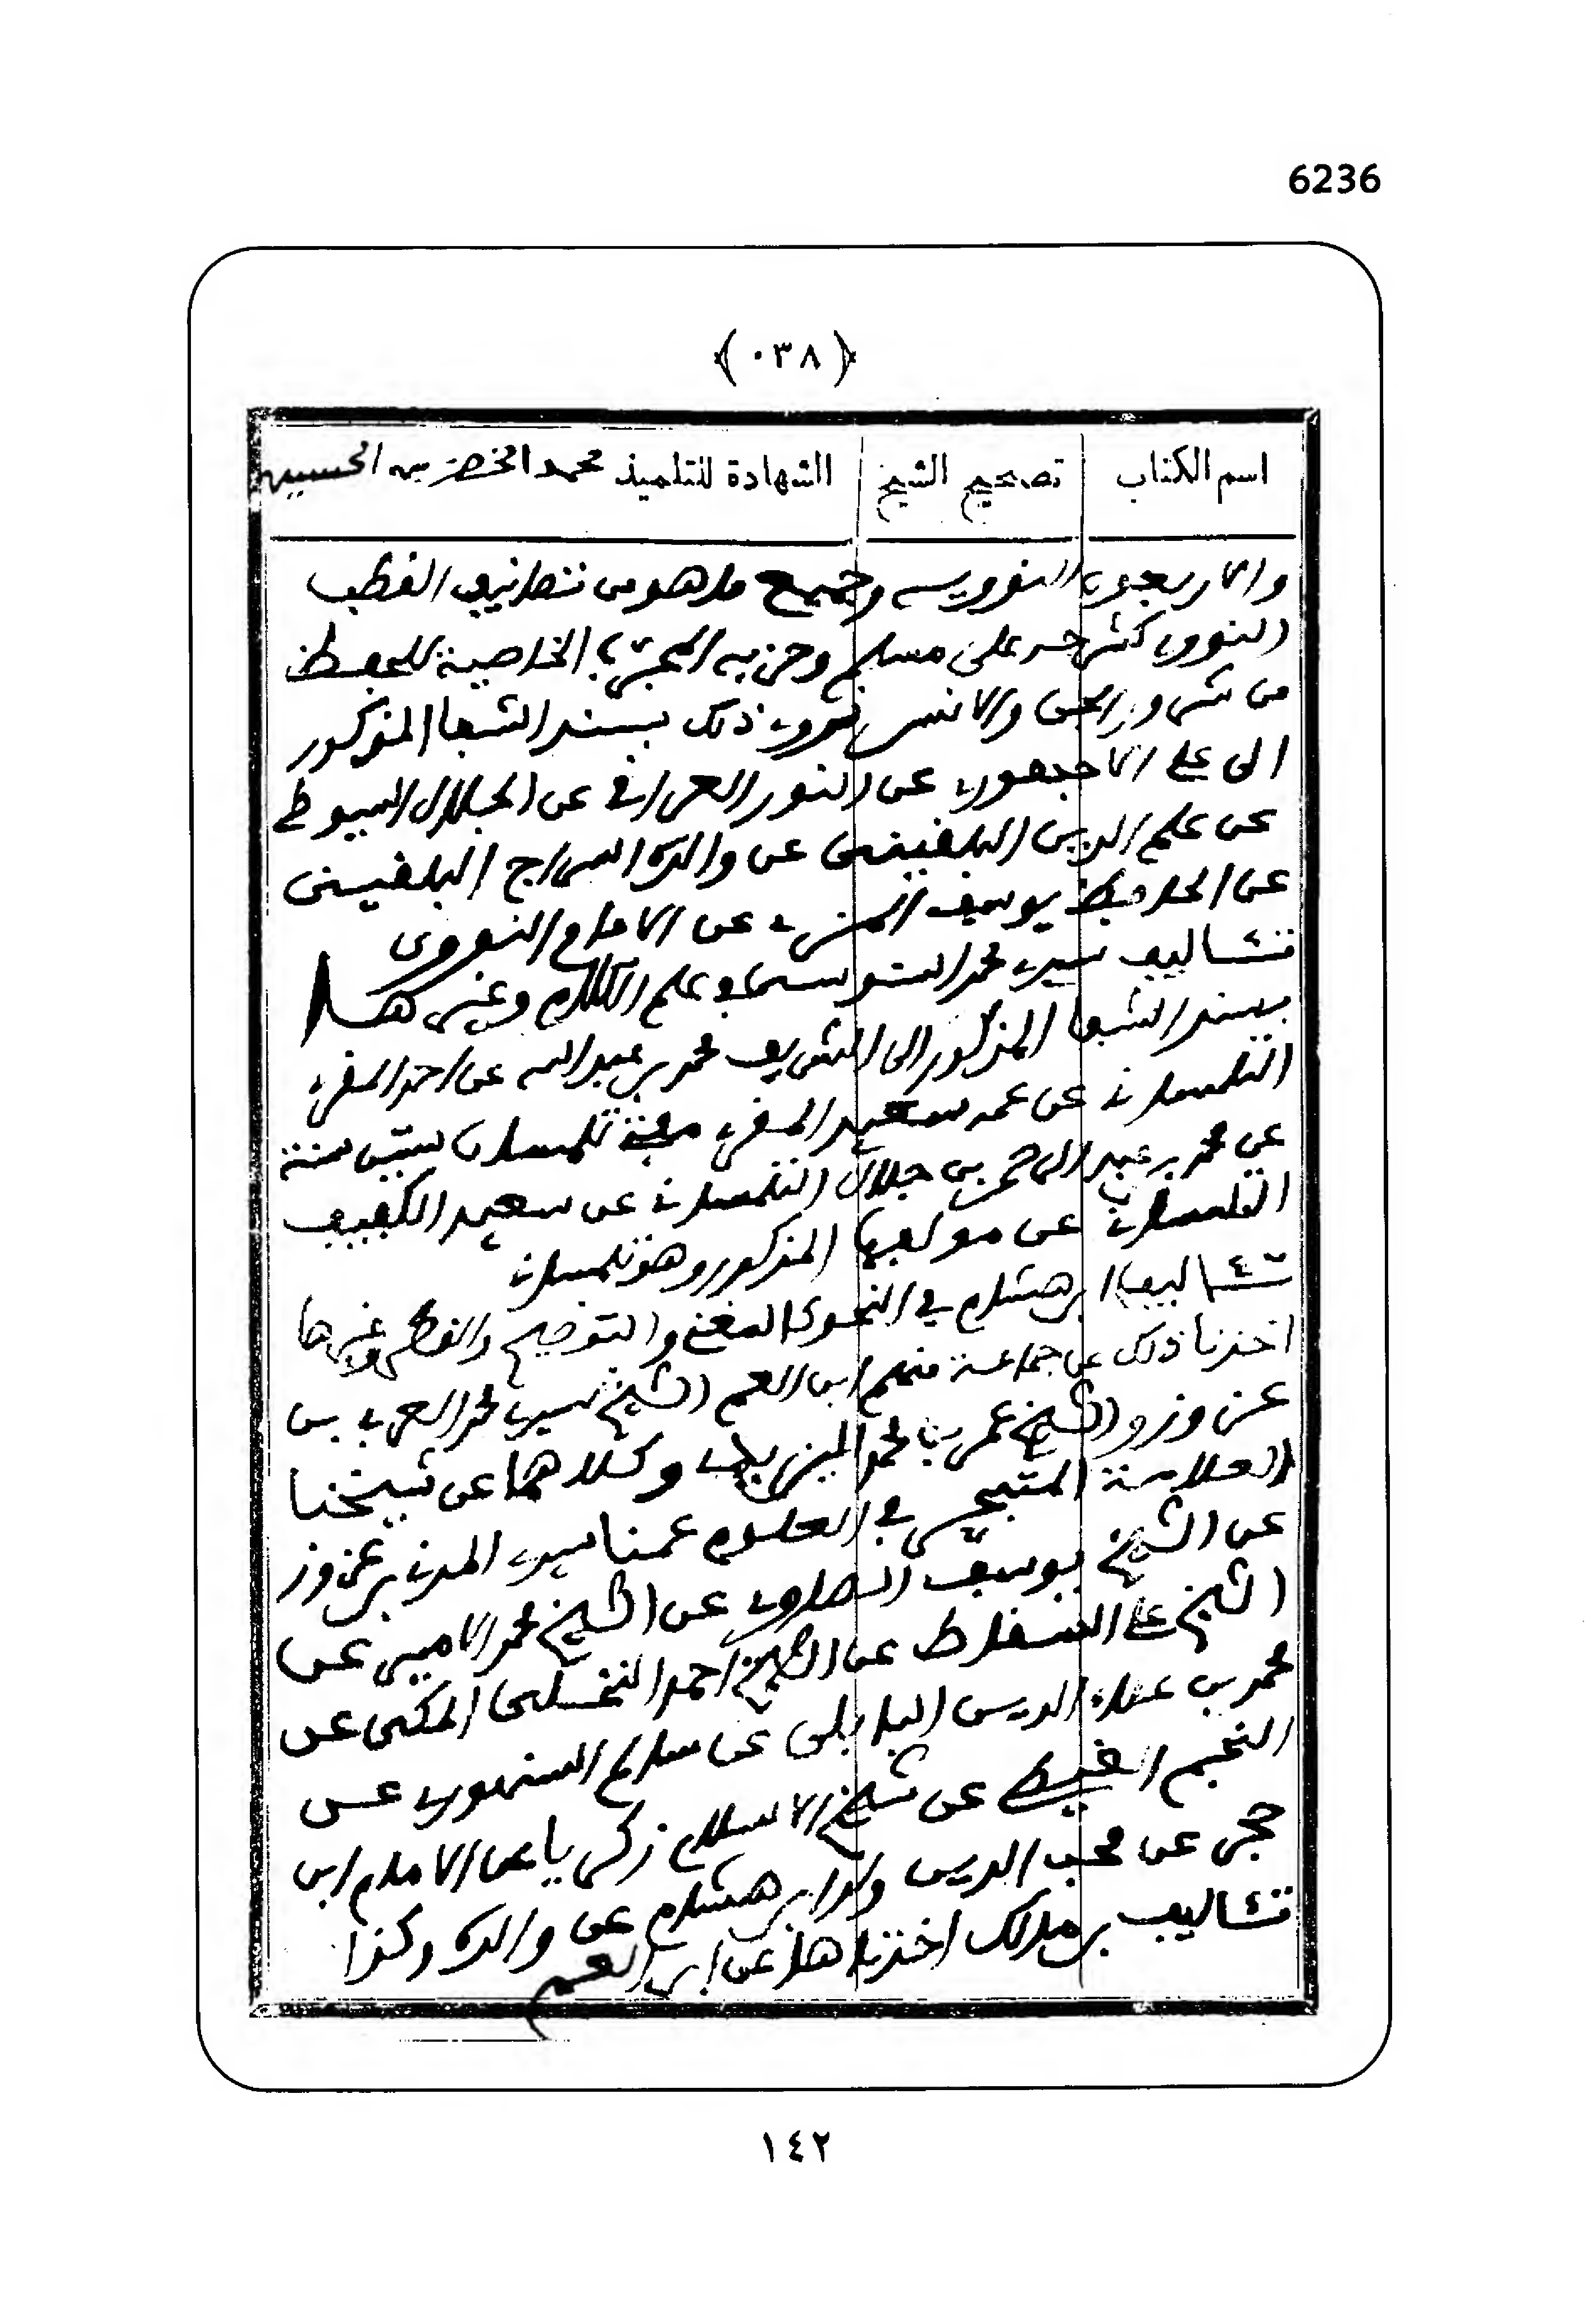 6236
(٠٣٨)
اسم الكتاب تصحيح الشيخ الشهادة للتلميذ محمد الخضر بن الحسين
والاربعون النووية وجميع ما هو من تصانيف القطب
النووي كشرحه على مسلم وحزبه المجرب الخاصية للحفظ
من شرور الجن والانس نروي ذلك بسند الشيخ المذكور
الى علي الاجهوري عن النور القرافي عن الجلال السيوطي
عن علم الدين البلقيني عن والده السراج البلقيني
عن الحافظ يوسف المزي عن الامام النووي
تئاليف سيدي محمد السنوسي في علم الكلام وغيرها
بسند الشيخ المذكور الى الشريف محمد بن عبد الله عن احمد المقري
التلمساني عن عمه سعيد المقري مفتي تلمسان ستين سنة
عن محمد بن عبد الرحمن بن جلال التلمساني عن سعيد الكفيف
التلمساني عن مولفها المذكور وهو تلمساني
تئاليف ابن هشام في النحو كالمغني والتوضيح والقطر وغيرها
اخذنا ذلك عن جماعة منهم ابن العم الشيخ سيدي محمد العربي بن
عزوز والشيخ عمر بن محمد وكلاهما عن شيخنا
العلامة المتبحر في العلوم عمنا سيدي المدني بن عزوز
عن الشيخ يوسف الصاوي عن الشيخ محمد الامير عن
الشيخ علي السقاط عن الشيخ احمد النخلي المكي عن
محمد بن علاء الدين البابلي عن سالم السنهوري عن
النجم الغيطي عن شيخ الاسلام زكريا عن الامام ابن
حجر عن محب الدين ولد ابن هشام عن والده وكذا
تئاليف بن مالك اخذناها عن ابن العم
١٤٢